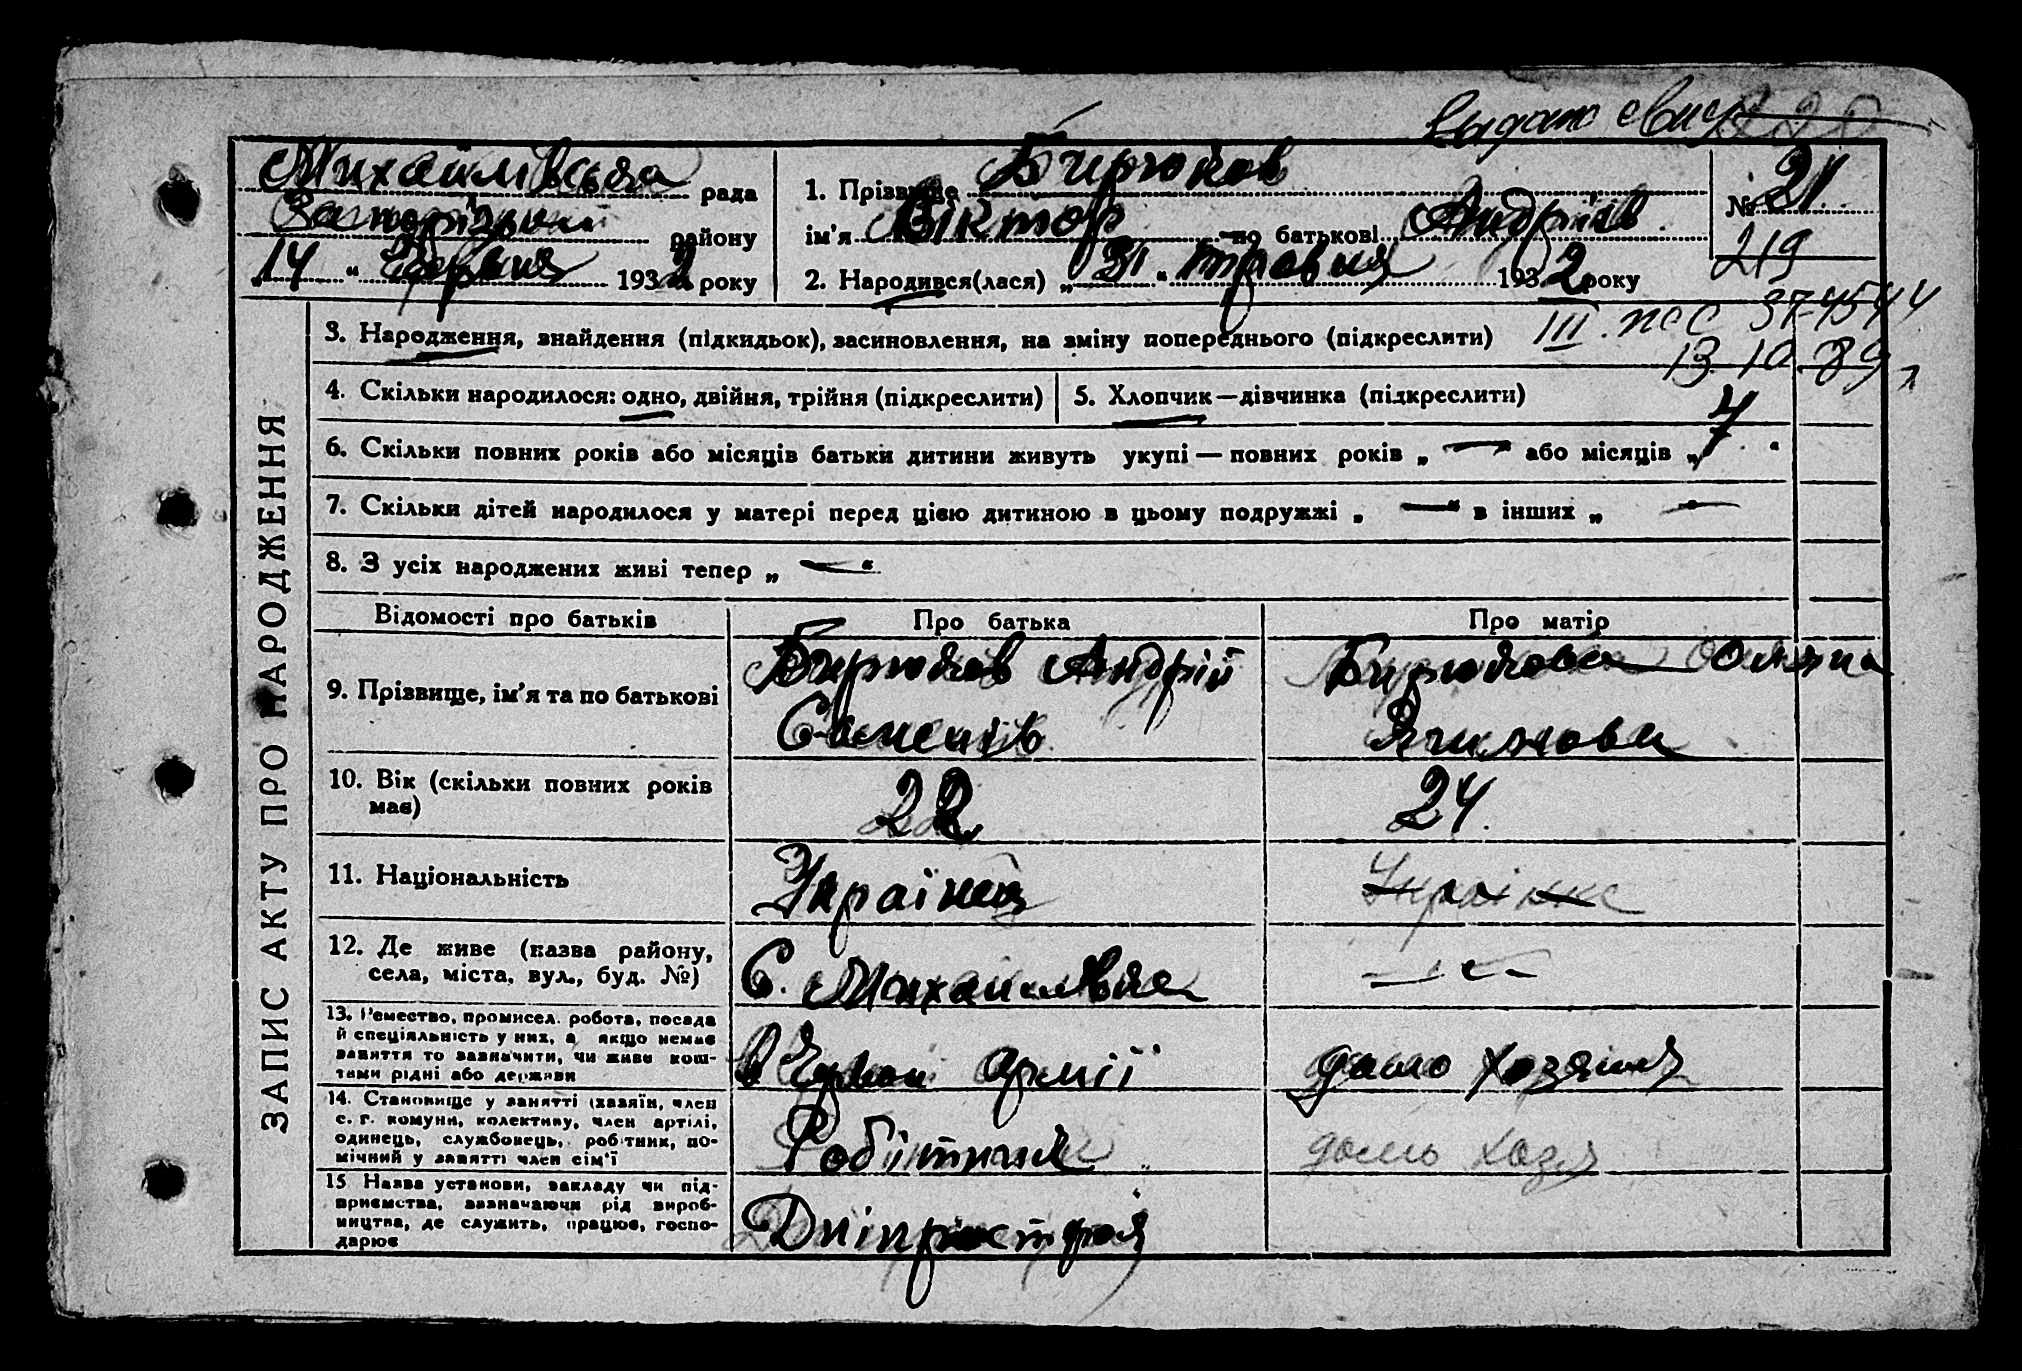 Видано свид
Михайлівська рада
Запорізький району
„14“ Червня 1932 року
1. Прізвище Бирюков
ім'я Віктор по батькові Андріів
2. Народився(лася) „31“ травня 1932 року
№ 21
219
ЗАПИС АКТУ ПРО НАРОДЖЕННЯ
3. Народження, знайдення (підкидьок), засиновлення, на зміну попереднього (підкреслити)
III. ПСС 374544
13 10 89
4. Скільки народилося: одно, двійня, трійня (підкреслити)
5. Хлопчик—дівчинка (підкреслити)
6. Скільки повних років або місяців батьки дитини живуть укупі — повних років „ — " або місяців „7“
7. Скільки дітей народилося у матері перед цією дитиною в цьому подружжі „ — “ в інших „ —
8. З усіх народжених живі тепер „ — “
Відомості про батьків Про батька Про матір
9. Прізвище, ім'я та по батькові
Бирюков Андрій
Семенів
Бирюкова Оляна
10. Вік (скільки повних років
має)
22
24
11. Національність
Українец
Українка
12. Де живе (назва району,
села, міста, вул., буд. №)
С. Михайлівка
— " —
13. Ремество, промисел, робота, посада
й спеціяльність у них, а якщо немає
заняття то зазначити, чи живе кош-
тами рідні або держави
В Червон армії
домо хозяйка
14. Становище у занятті (хазяїн, член
с. г. комуни, колективу, член артілі,
одинець, службовець, робітник, по-
мічний у занятті член сім'ї
Робітник
домо хозя
15 Назва установи, закладу чи під-
приємства, зазначаючи рід вироб-
ництва, де служить, працює, госпо-
дарює
Дніпрострой